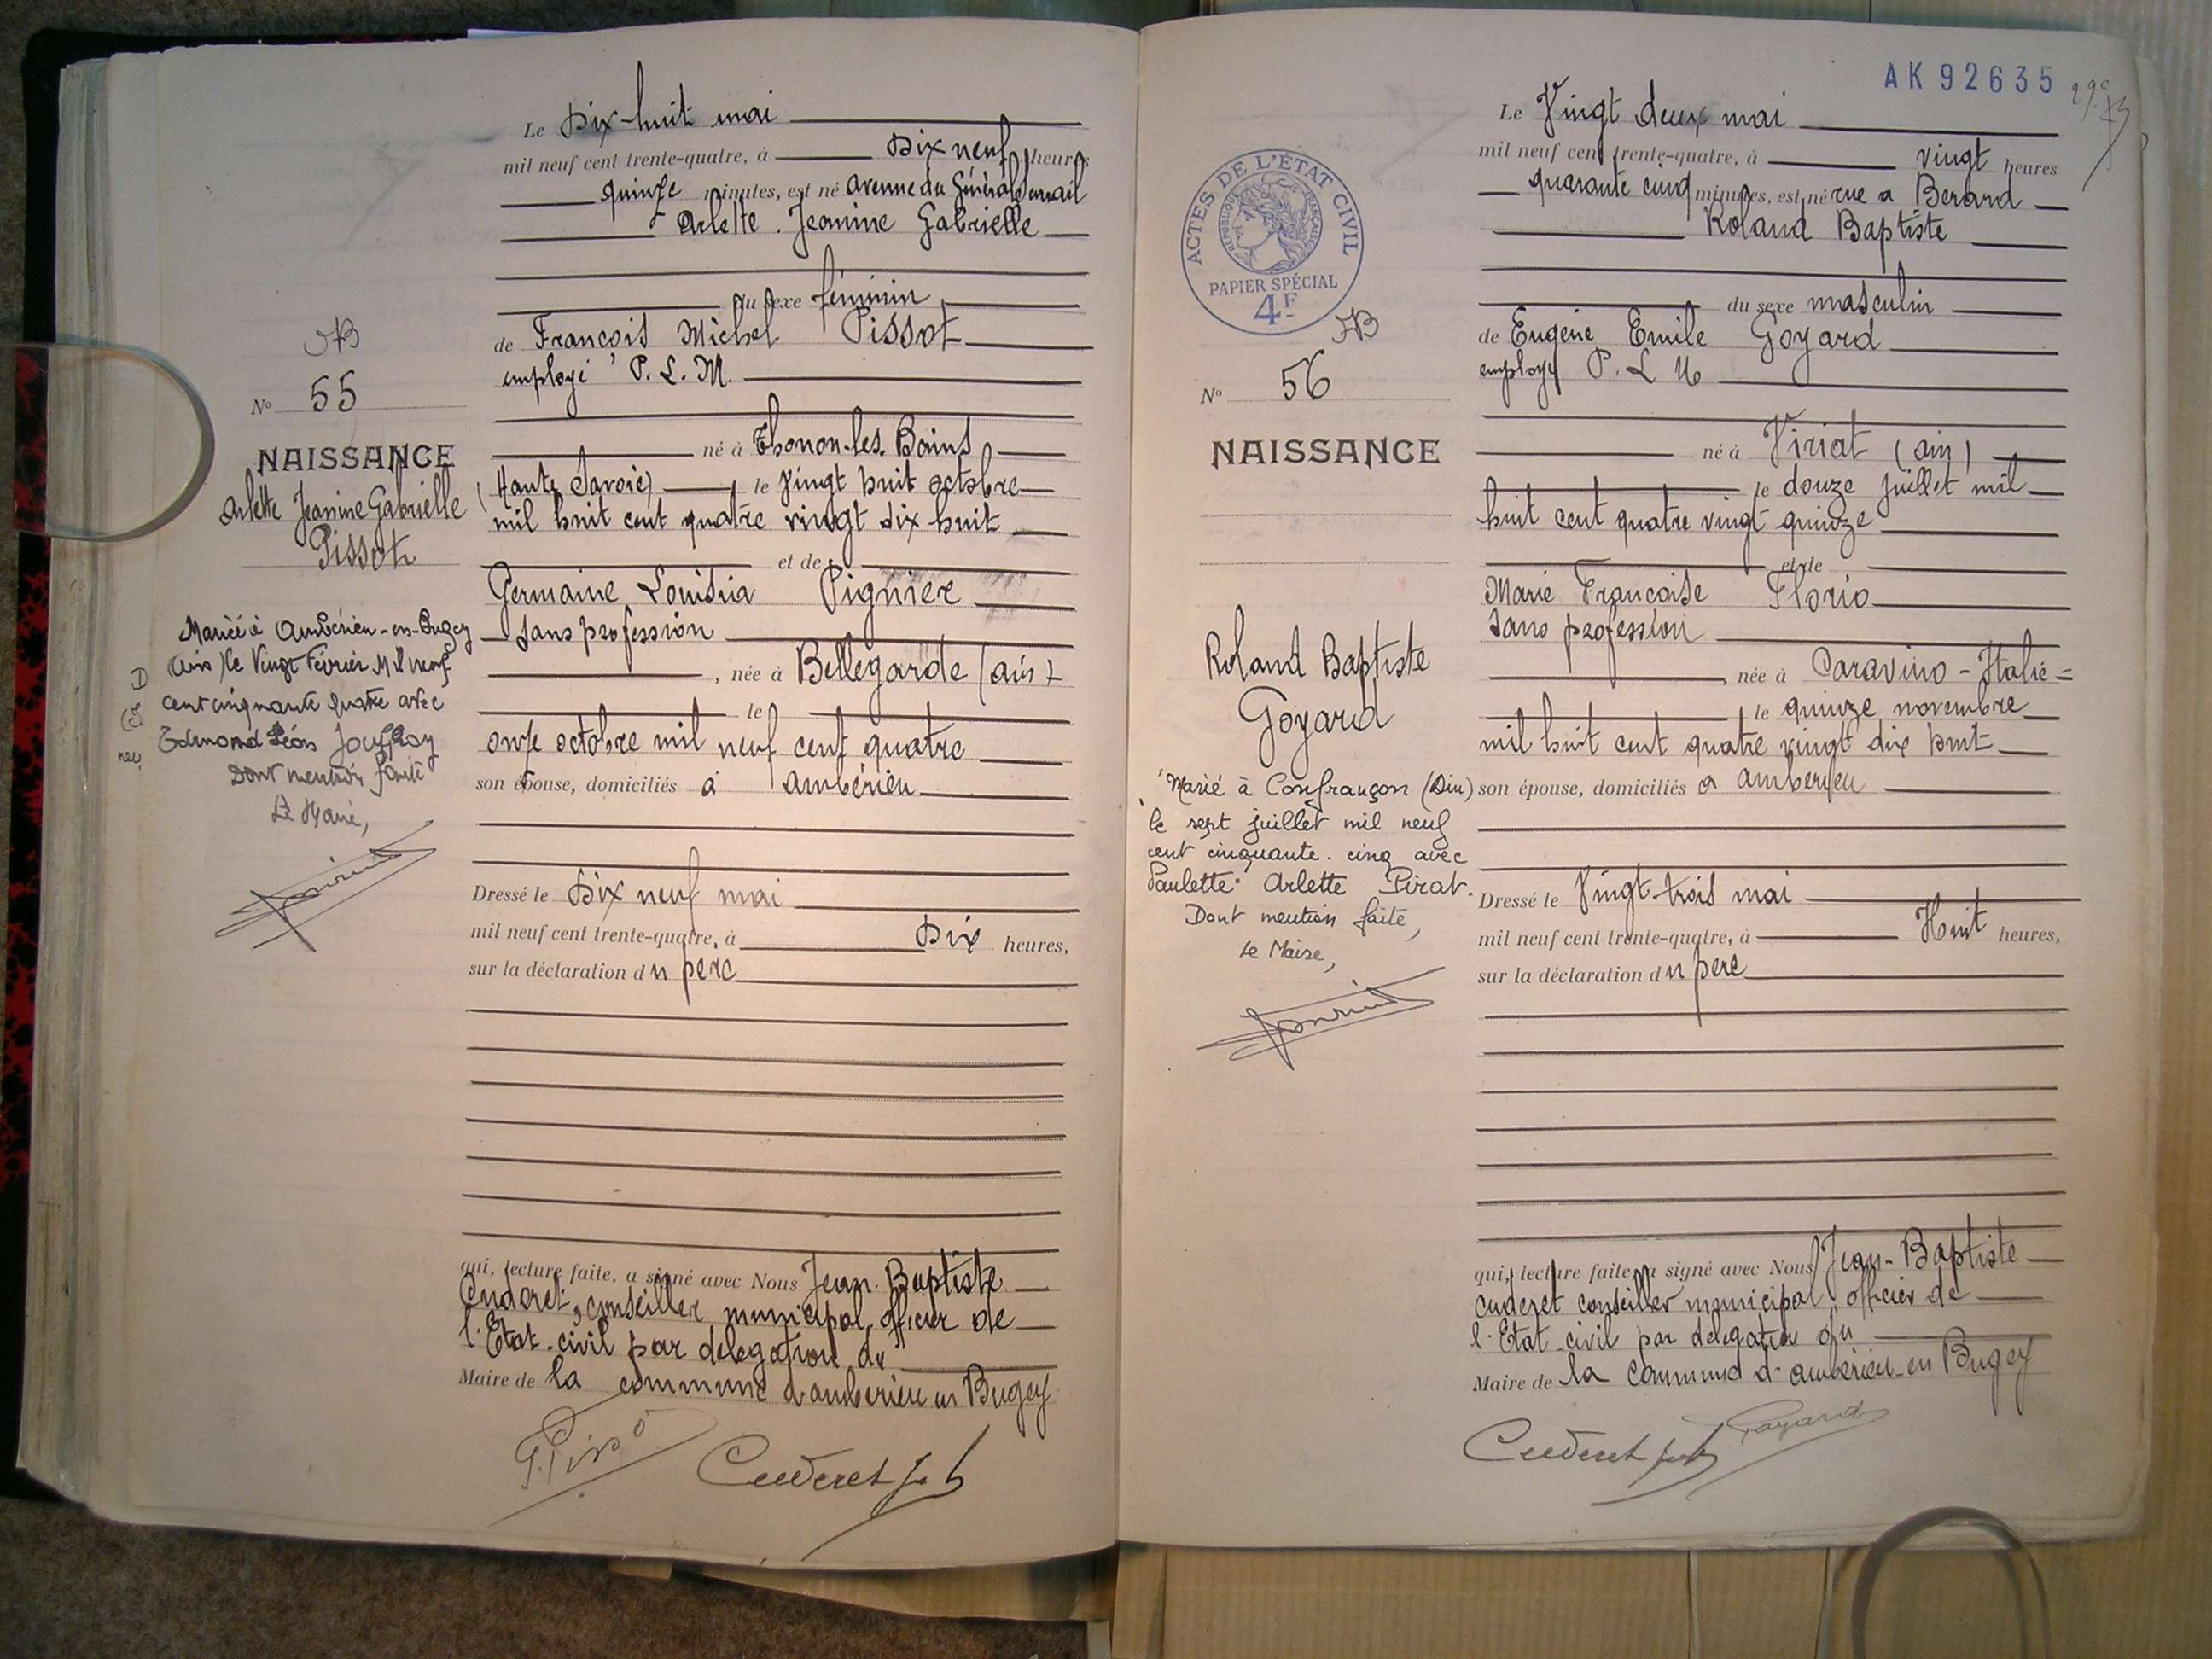 Le Dix-huit mai
mil neuf cent trente-quatre, à Dix neuf heures
quinze minutes, est né avenue du Général Sarrail
Arlette. Jeanine Gabrielle
du sexe féminin
de François Michel Pissot
employé P. L. M.
né à Thonon-les-Bains
(Haute Savoie) le Vingt huit octobre
mil huit cent quatre vingt dix huit
et de
Germaine Louisia Pignier
sans profession
, née à Bellegarde (ain)
le
onze octobre mil neuf cent quatre
son épouse, domiciliés à Ambérieu
Dressé le Dix neuf mai
mil neuf cent trente-quatre, à Dix heures,
sur la déclaration du père
qui, lecture faite, a signé avec Nous Jean-Baptiste
Cuderet, conseiller municipal, officier de
l'Etat-civil par délégation du
Maire de la commune d'ambérieu en Bugey
Cuderet
N° 55
NAISSANCE
Arlette Jeanine Gabrielle
Pissot
Mariée à Ambérieu-en-Bugey
(Ain) le Vingt Février Mil neuf
cent cinquante quatre avec
Edmond Léon Jouffroy
Dont mention faite
Le Maire,
AK92635
ACTES DE L'ÉTAT CIVIL
RÉPUBLIQUE FRANÇAISE
PAPIER SPÉCIAL
4F
Le Vingt deux mai
mil neuf cent trente-quatre, à vingt heures
quarante cinq minutes, est né rue a Berard
Roland Baptiste
du sexe masculin
de Eugène Emile Goyard
employé P. L M
né à Viriat (ain)
le douze juillet mil
huit cent quatre vingt quinze
et de
Marie Françoise Florio
sans profession
née à Caravino - Italie =
le quinze novembre
mil huit cent quatre vingt dix huit
son épouse, domiciliés à Ambérieu
Dressé le Vingt-trois mai
mil neuf cent trente-quatre, à Huit heures,
sur la déclaration du père
qui, lecture faite, a signé avec Nous Jean-Baptiste
Cuderet conseiller municipal officier de
l'Etat-civil par délégation du
Maire de la commune d'ambérieu-en Bugey
Cuderet Goyard
N° 56
NAISSANCE
Roland Baptiste
Goyard
Marié à Confrançon (Ain)
le sept juillet mil neuf
cent cinquante. cinq avec
Paulette Arlette Pirat.
Dont mention faite,
Le Maire,